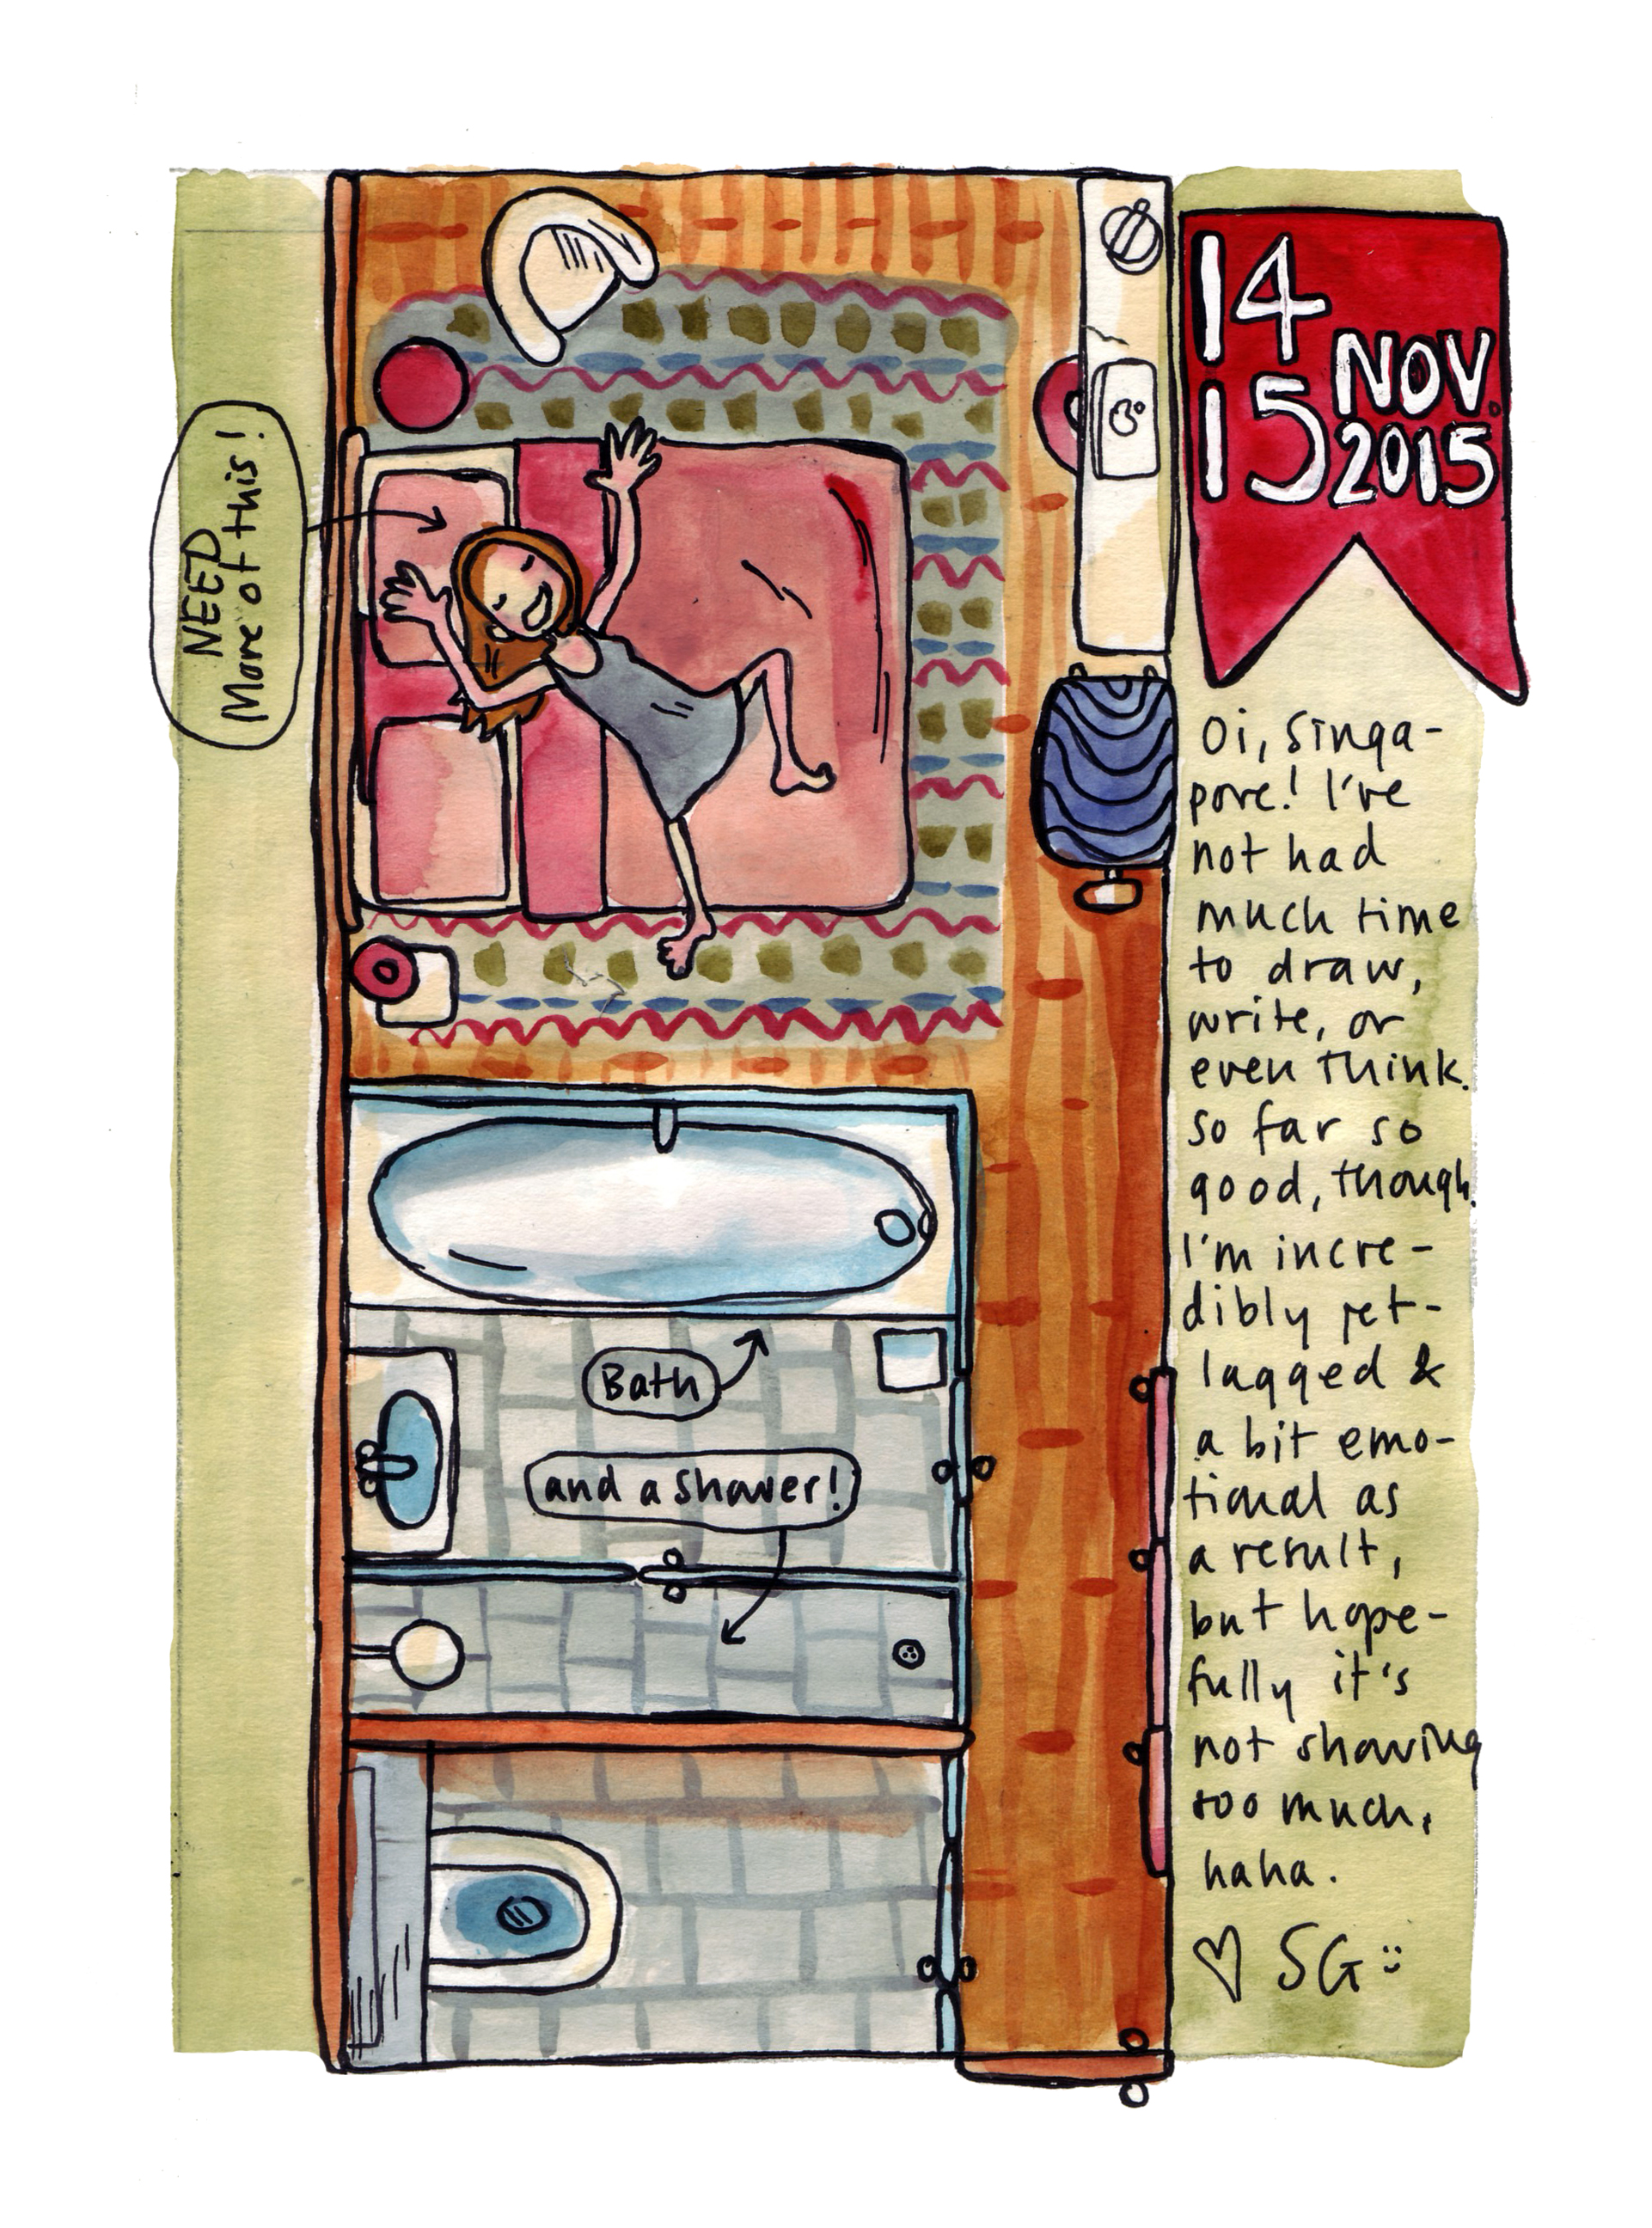 NEED
More of this!
14
15
NOV.
2015
Oi, singa-
pore! I've
not had
much time
to draw,
write, or
even think.
So far so
good, though.
I'm incre-
dibly jet-
lagged &
a bit emo-
tional as
a result,
but hope-
fully it's
not showing
too much,
haha.
♡ SG :)
Bath
and a shower!